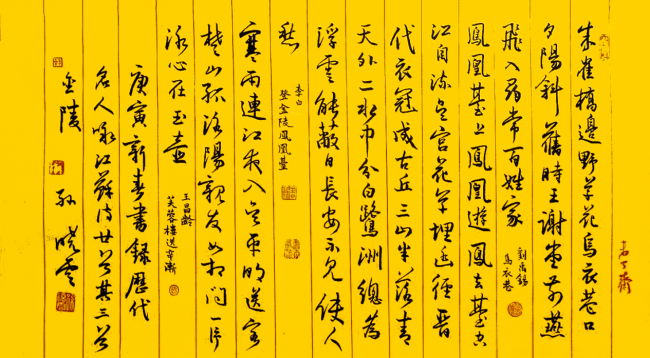 朱雀橋邊野草花烏衣巷口
夕陽斜舊時王謝堂前燕
飛入尋常百姓家
劉禹錫
烏衣巷
鳳凰臺上鳳凰遊鳳去臺空
江自流吳宮花草埋幽徑晉
代衣冠成古丘三山半落青
天外二水中分白鷺洲總為
浮雲能蔽日長安不見使人
愁
李白
登金陵鳳凰臺
寒雨連江夜入吳平明送客
楚山孤洛陽親友如相問一片
冰心在玉壺
王昌齡
芙蓉樓送辛漸
庚寅新春書錄歷代
名人詠江蘇詩廿首其三首
金陵 孫曉雲